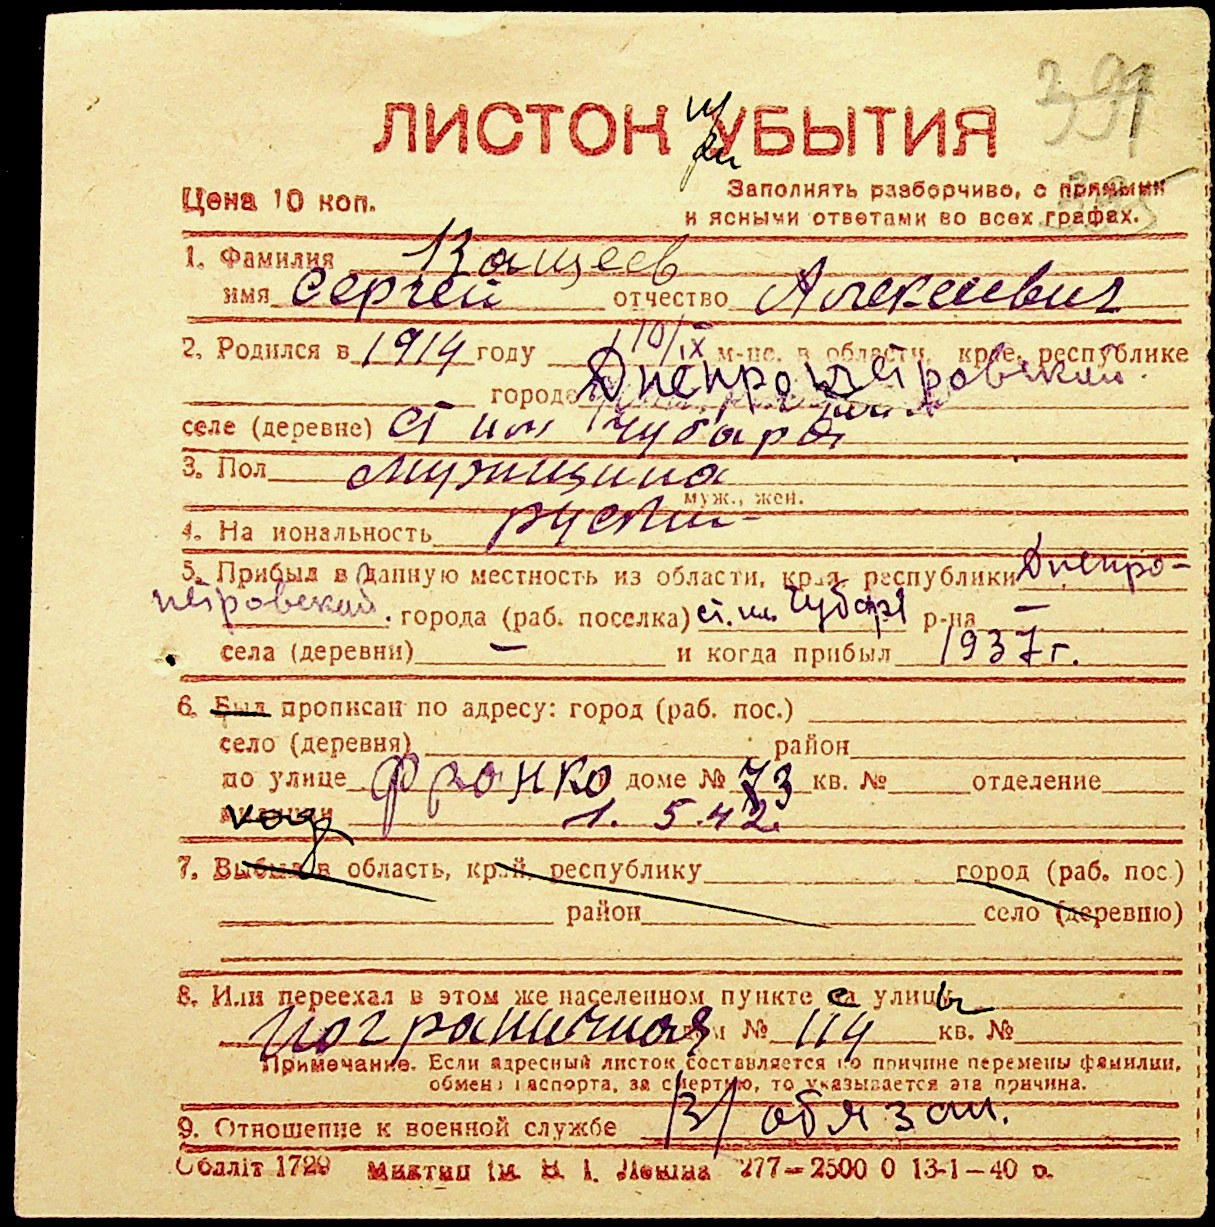 391
395
ЛИСТОК УБЫТИЯ
при
Цена 10 коп.
Заполнять разборчиво, с прямыми
и ясными ответами во всех графах.
1. Фамилия Кащеев
имя Сергей отчество Алексеевич
2. Родился в 1914 году 10/IX м-це, в области, крае, республике
городе Днепропетровской
селе (деревне) ст им Чубаря
3. Пол мужчина
муж., жен.
4. На иональность русский
5. Прибыл в данную местность из области, края, республики Днепро-
петровской. города (раб. поселка) ст. им. Чубаря р-на –
села (деревни) – и когда прибыл 1937 г.
6. Был прописан по адресу: город (раб. пос.)
село (деревня) район
по улице Франко доме № 73 кв. № отделение
милиции 1. 5. 42
7. Выбыл в область, край, республику город (раб. пос.)
район село (деревню)
8. Или переехал в этом же населенном пункте с улицы
Пограничная дом № 114 кв. №
Примечание. Если адресный листок составляется по причине перемены фамилии,
обмена паспорта, за смертью, то указывается эта причина.
9. Отношение к военной службе В/обязан.
Обллiт 1729 Миктип iм. В. I. Ленiна 277—2500 0 13-1—40 р.